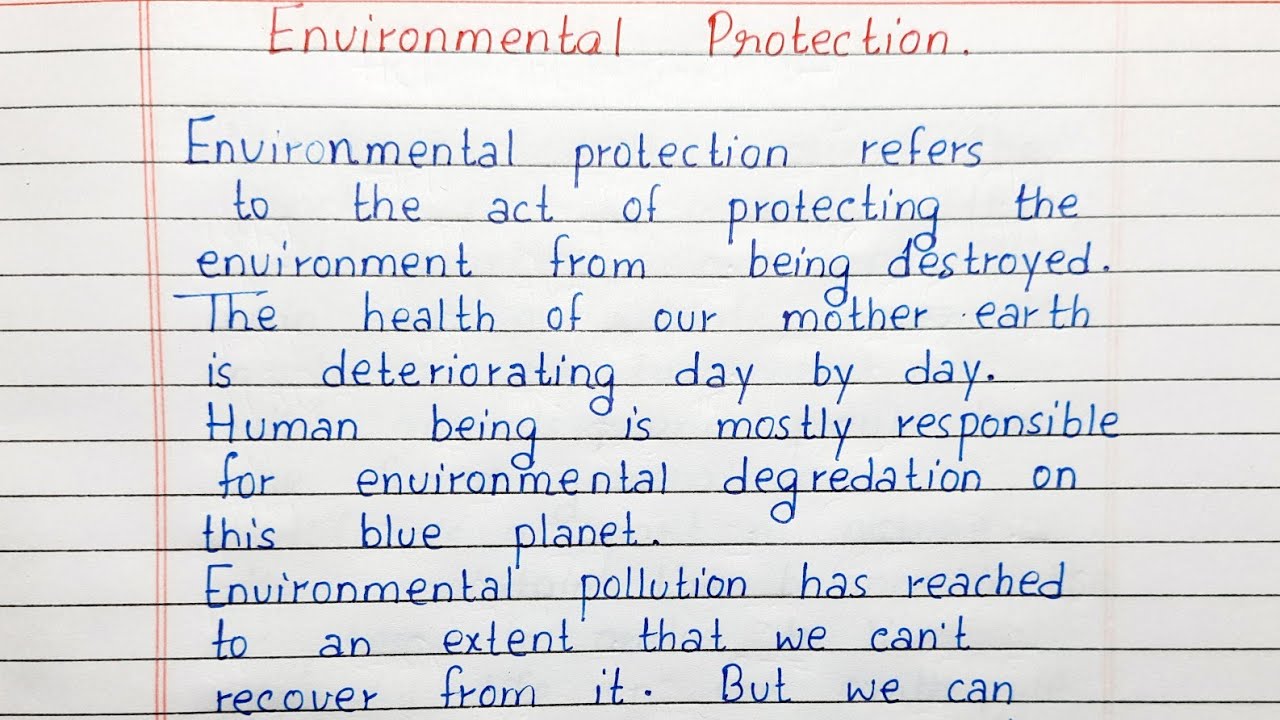 Environmental Protection.
Environmental protection refers
to the act of protecting the
environment from being destroyed.
The health of our mother earth
is deteriorating day by day.
Human being is mostly responsible
for environmental degredation on
this blue planet.
Environmental pollution has reached
to an extent that we can't
recover from it. But we can